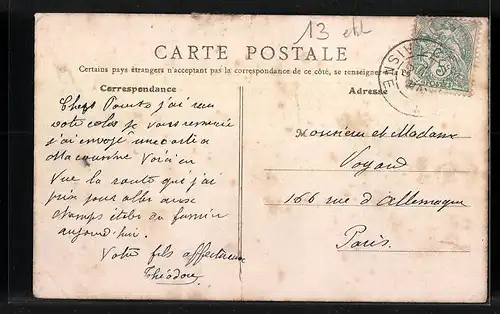 13 
CARTE POSTALE
Certains pays étrangers n'acceptant pas la correspondance de ce côté, se renseigner à la
Correspondance
Adresse
Chers Parents j'ai reçu
votre colis je vous remercie
j'ai envoyé une carte a
Ma cousine
Vue la route que j'ai
pris pour aller aux
champs
aujourd'hui.
Votre fils affectueux
Théodore
Monsieur et Madame
Voyard
166 rue d'Allemagne
Paris.